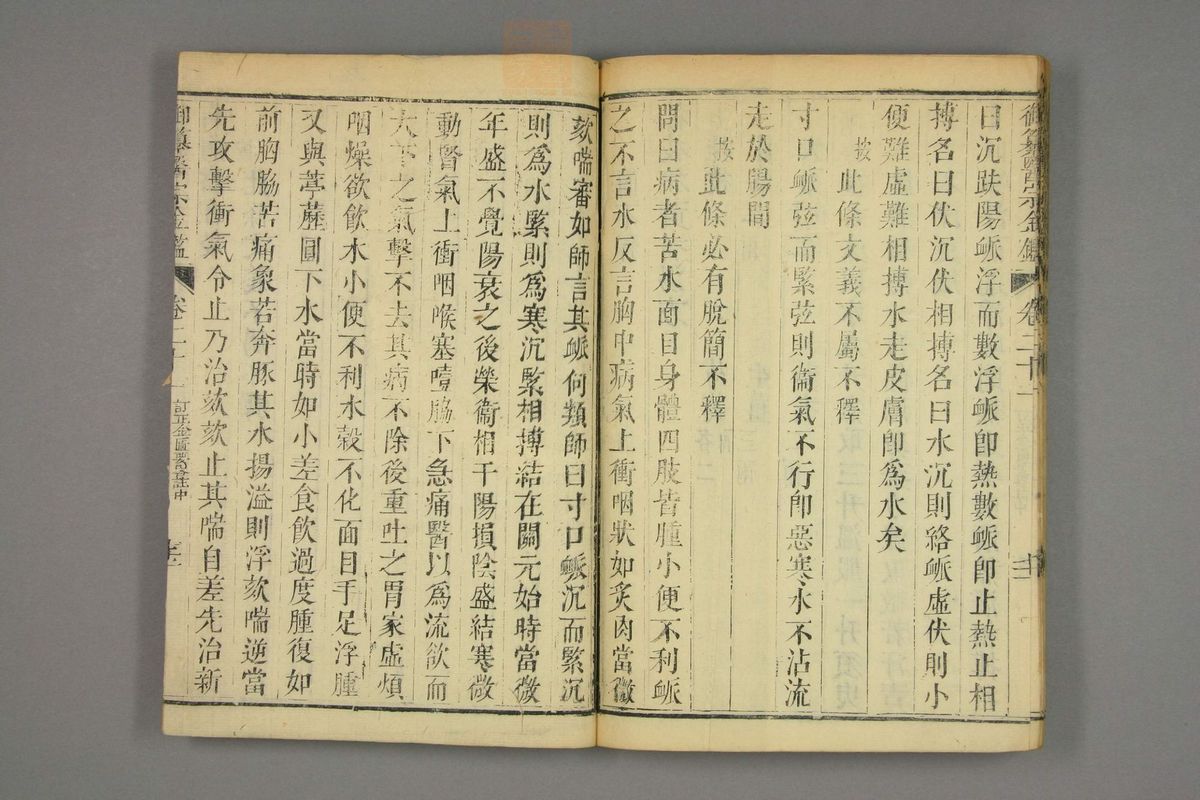 御纂醫宗金鑑 卷二十一
曰沉趺陽脈浮而數浮脈即熱數脈即止熱止相
搏名曰伏沉伏相搏名曰水沉則絡脈虛伏則小
便難虛難相搏水走皮膚即為水矣
按此條文義不屬不釋
寸口脈弦而緊弦則衞氣不行即惡寒水不沾流
走於腸間
按此條必有脫簡不釋
問曰病者苦水面目身體四肢皆腫小便不利脈
之不言水反言胸中病氣上衝咽狀如炙肉當微
欬喘審如師言其脈何類師曰寸口脈沉而緊沉
則為水緊則為寒沉緊相搏結在關元始時當微
年盛不覺陽衰之後榮衞相干陽損陰盛結寒微
動腎氣上衝咽喉塞噎脇下急痛醫以為流飲而
大下之氣擊不去其病不除後重吐之胃家虛煩
咽燥欲飲水小便不利水穀不化面目手足浮腫
又與葶藶圓下水當時如小差食飲過度腫復如
前胸脇苦痛象若奔豚其水揚溢則浮欬喘逆當
先攻擊衝氣令止乃治欬欬止其喘自差先治新
御纂醫宗金鑑 卷二十一 訂正金匱要畧註中